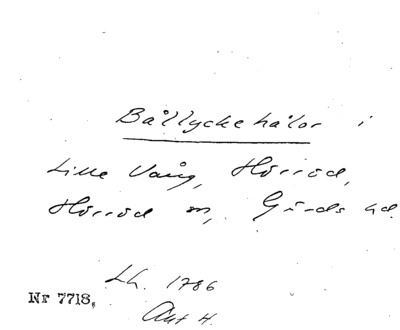 Bållyckehålor i
Lille Vång, Hörröd,
Hörröd sn, Gärds hd
Lh. 1786
Akt H.
Nr 7718,